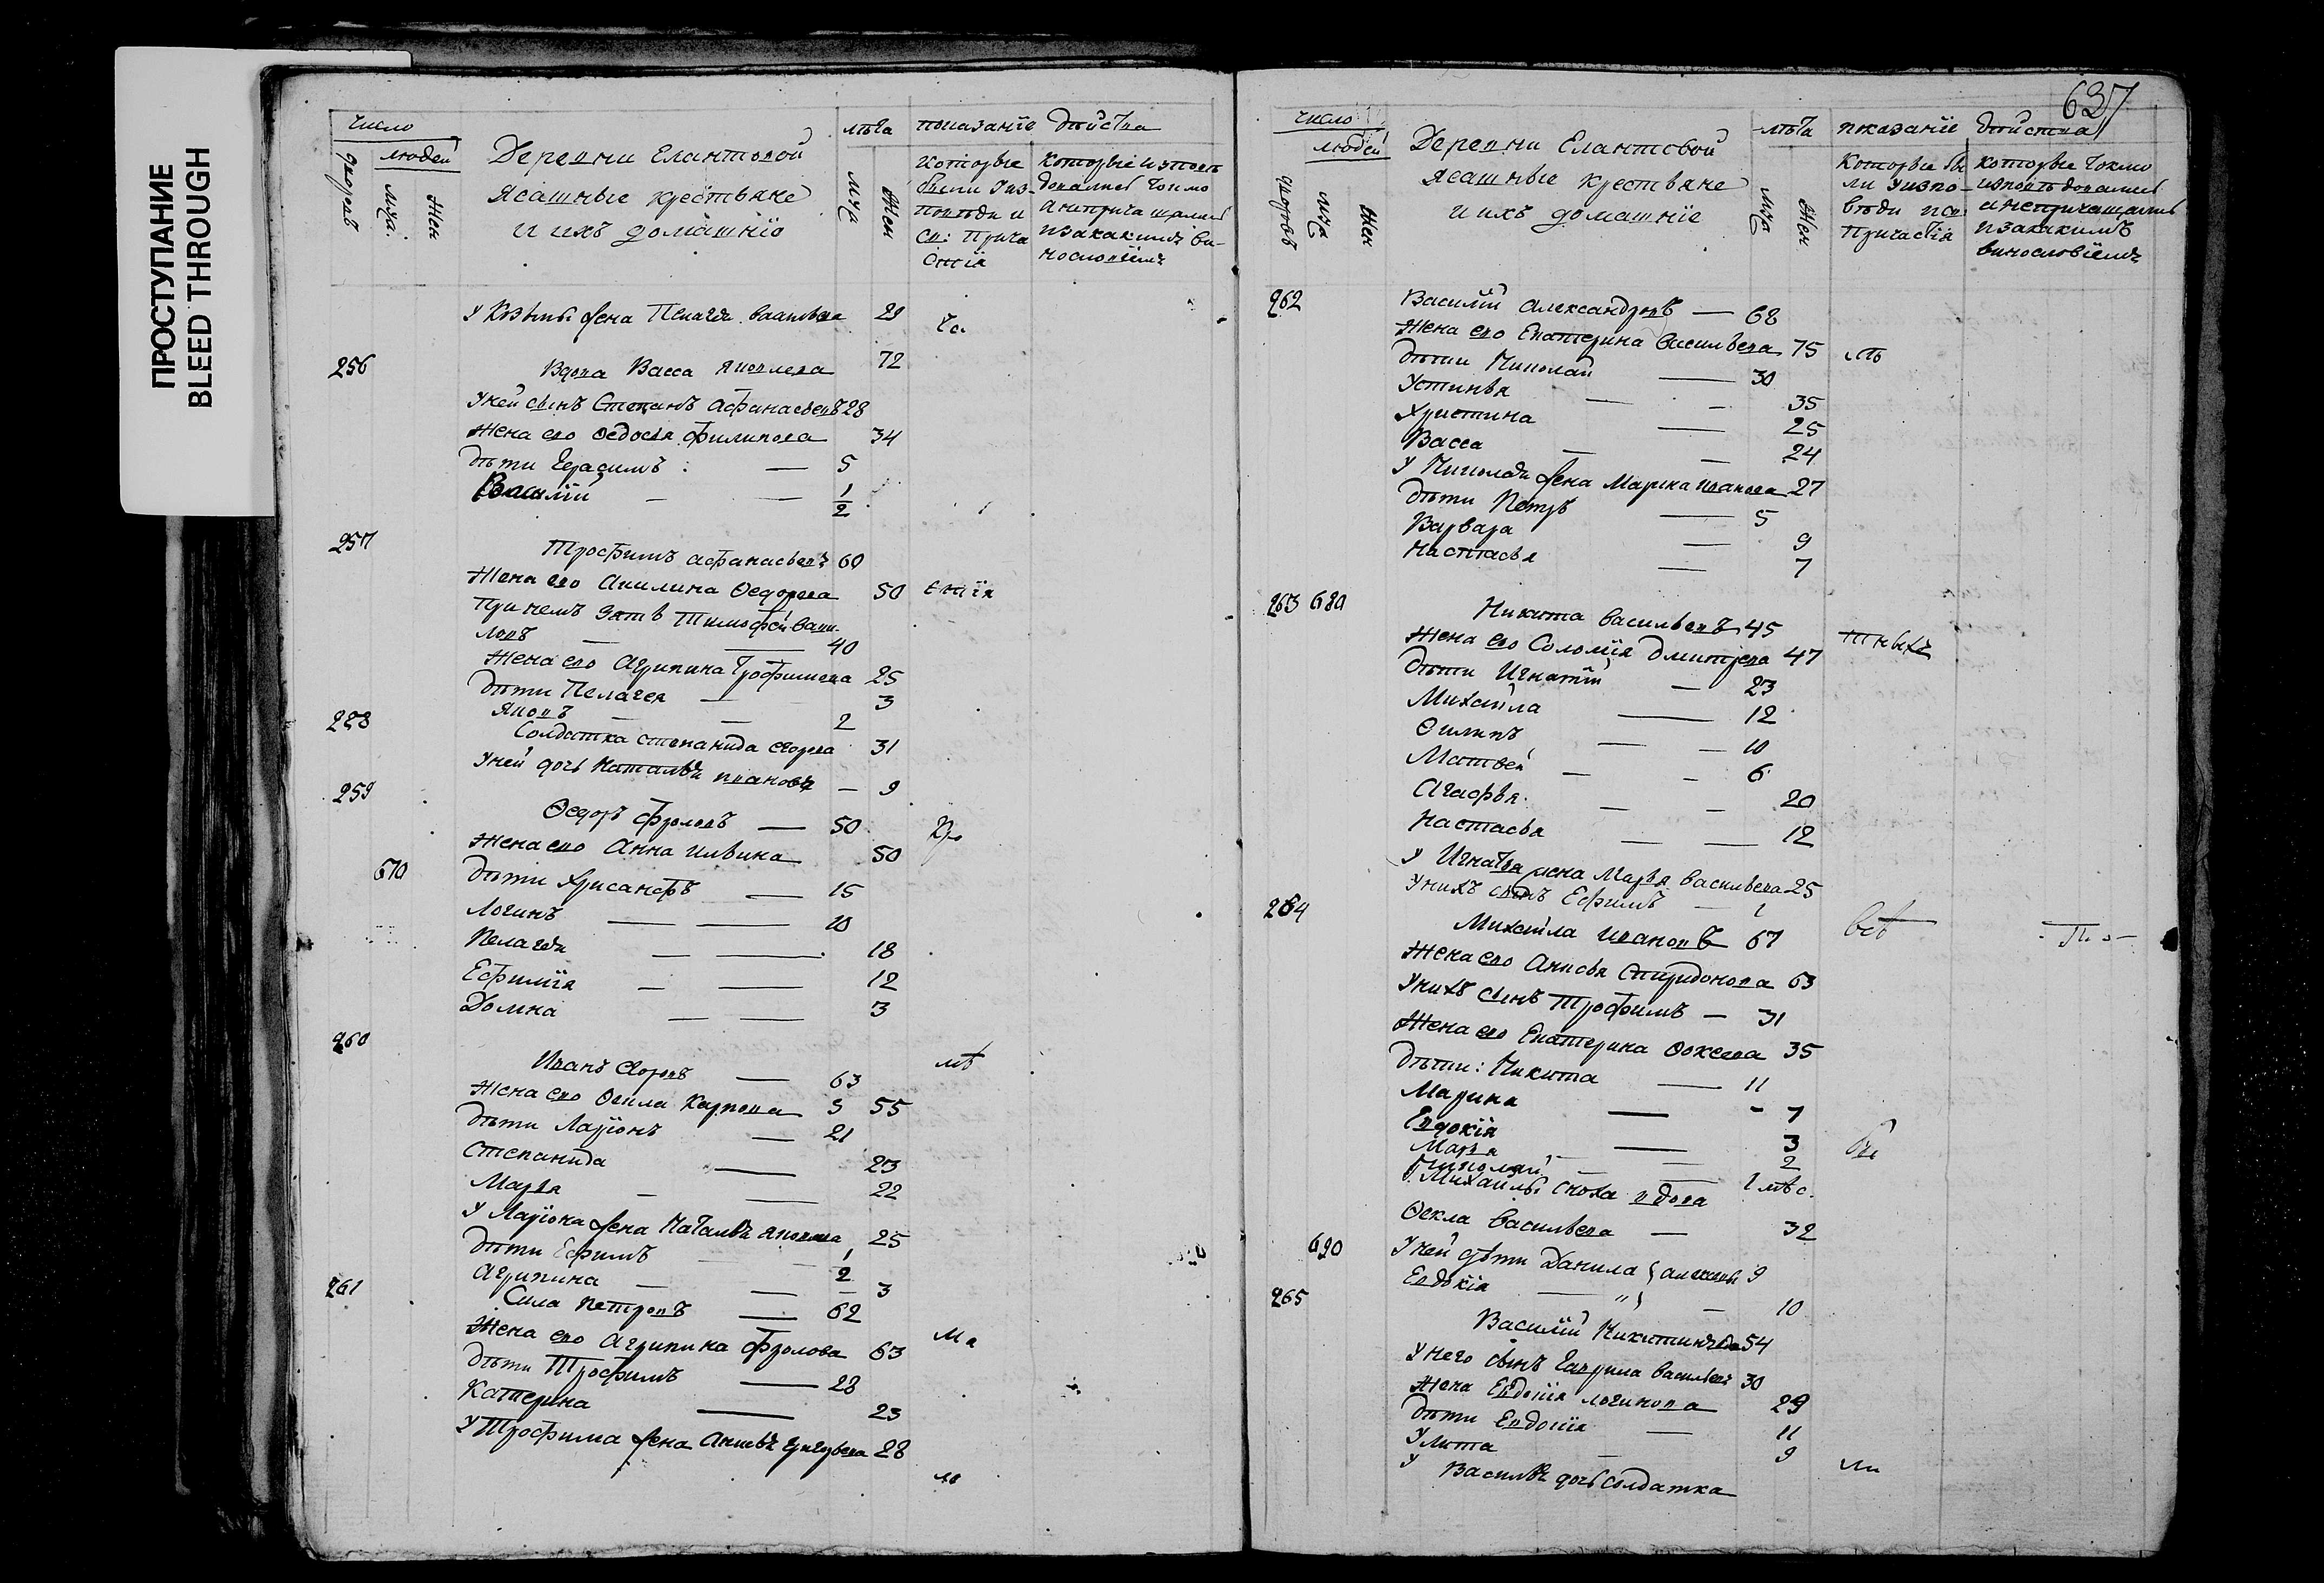 ПРОСТУПАНИЕ
BLEED THROUGH
число
людей
дворовъ
муж.
жен
Деревни Елантовой
Ясашные крестьяне
и ихъ домашнiе
лѣта
муж
жен
показанiе
дѣйства
которые
были у ис-
повѣди и
св: прича
стiя
которые исповѣ
довались токмо
а непричащались
и за какимъ ви-
нословiемъ
У Козьмы жена Пелагея Васильева 29
256
Вдова Васса Яковлева 72
У ней сынъ Степанъ Афанасьевъ 28
Жена его Федосья Филипова 34
Дѣти Герасимъ — 5
Василiй — 1/2
257
Трофимъ Афанасьевъ 60
Жена его Акилина Федорова 50 стiя
При немъ зять Тимофей Вави-
ловъ — 40
Жена его Агрипина Трофимова 25
Дѣти Пелагея — 3
Яковъ — 2
258
Солдатка Степанида Егорова 31
У ней дочь Наталья Иванова — 9
259
Федоръ Фроловъ — 50
Жена его Анна Ильина 50
670
Дѣти Хрисанфъ — 15
Логинъ — 10
Пелагея — 18
Ефимiя — 12
Домна — 3
260
Иванъ Егоровъ — 63
Жена его Фекла Карпова 55
Дѣти Ларiонъ — 21
Степанида — 23
Марья — 22
У Ларiона жена Наталья Яковлева 25
Дѣти Ефимъ — 1/2
Агрипина — 3
261
Сила Петровъ — 62
Жена его Агрипина Фролова 63
Дѣти Трофимъ — 28
Катерина — 23
У Трофима жена Анисья Григорьева 28
637
число
людей
дворовъ
муж
жен
Деревни Елантовой
Ясашные крестьяне
и ихъ домашнiе
лѣта
муж
жен
показанiе
дѣйства
Которые бы
ли у испо-
вѣди и св:
причастiя
которые токмо
исповѣдовались
а непричащались
и за какимъ
винословiемъ
262
Василiй Александровъ — 68
Жена его Екатерина Васильева 75
Дѣти Николай — 30
Устинья — 35
Христина — 25
Васса — 24
У Николая жена Марина Иванова 27
Дѣти Петръ — 5
Варвара — 9
Настасья — 7
263 680
Никита Васильевъ 45
Жена его Соломiя Дмитрева 47
Дѣти Игнатiй — 23
Михайла — 12
Филипъ — 10
Матвей — 6
Агафья — 20
Настасья — 12
У Игнатья жена Марья Васильева 25
У нихъ сынъ Ефимъ — 1
264
Михайла Ивановъ 67
Жена его Анисья Спиридонова 63
У нихъ сынъ Трофимъ — 31
Жена его Екатерина 35
Дѣти: Никита — 11
Марина — 7
Евдокiя — 3
Марья — 2
Николай — 1 мѣс.
У Михайлы сноха вдова
Фекла Васильева — 32
690
У ней дѣти Данила 9
Евдокiя — 10
265
Василiй Никитинъ 54
У него сынъ Гаврила Васильевъ 30
Жена Евдокiя Логинова 29
Дѣти Евдокiя — 11
Улита — 9
У Василья дочь солдатка